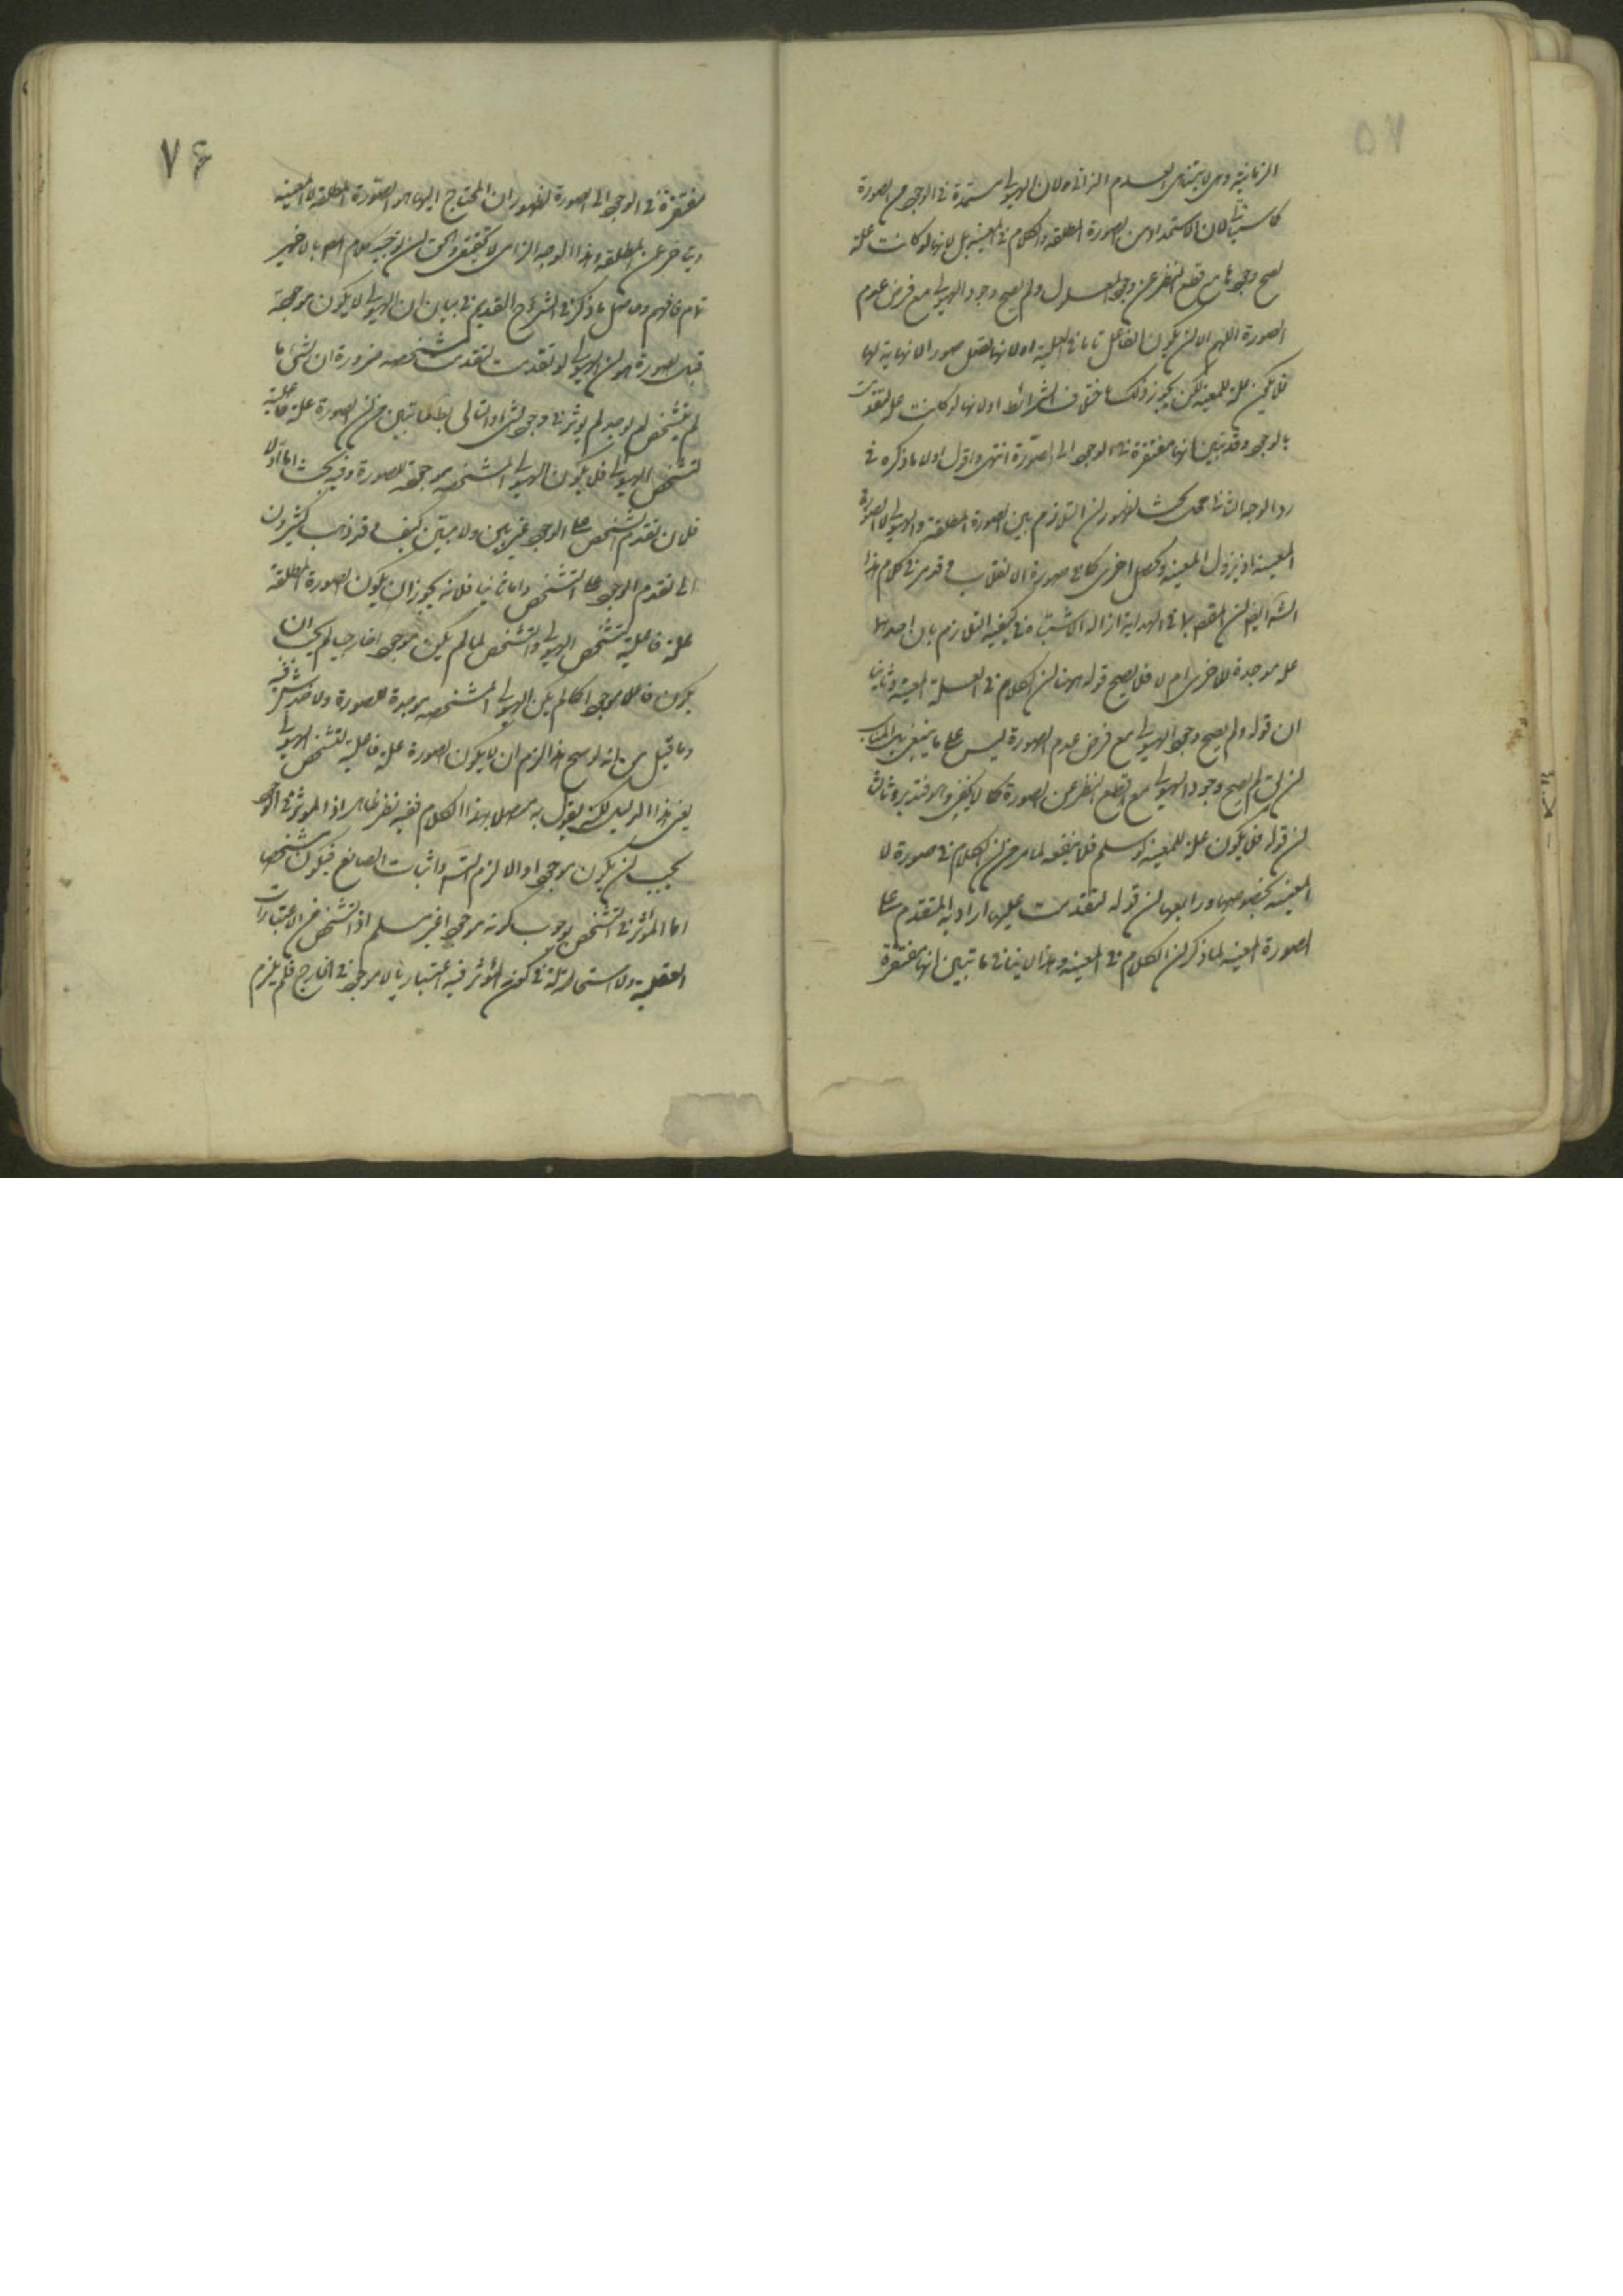 الزمانية وهى لا يتناهى العدم الزمانى ولان الهيولى مستمدة فى الوجود من الصورة
كما سيأتى لان الاستمداد من الصورة المطلقة والكلام فى المعينة بل لانها لو كانت علة
لصح وجودها مع قطع النظر عن وجود المعلول ولم يصح وجود الهيولى مع فرض عدم
الصورة اللهم الا ان يكون الفاعل تاما فى العلية اولانها تقبل صورا لا نهاية لها
فلا يكون علة للمعينة لكن يجوز ذلك باختلاف الشرائط اولانها لو كانت علة لتقدمت
بالوجود وقد تبين انها مفتقرة فى الوجود الى الصورة انتهى واقول اولا ما ذكره فى
رد الوجه الثانى محل بحث لظهور ان التلازم بين الصورة المطلقة والهيولى لا الصورة
المعينة اذ يزول المعينة ويحصل اخرى كما فى صورة الانقلاب وقد مر فى كلام هذا
الشارح ايضا ان المقصود فى الهداية ازالة الاشتباه فى كيفية التلازم بان احديهما
علة موجدة للاخرى ام لا فلا يصح قوله هنا ان الكلام فى العلة المعينة وثانيا
ان قوله ولم يصح وجود الهيولى مع فرض عدم الصورة ليس على ما ينبغى بل المناسب
ان يق لم يصح وجود الهيولى مع قطع النظر عن الصورة كما لا يخفى فتدبر وثالثا
ان قوله فلا يكون علة للمعينة لو سلم فلا ينفعه لما مر من ان الكلام فى صورة لا
المعينة بخصوصها ورابعا ان قوله لتقدمت عليها اراد به المتقدم على
الصورة المعينة لما ذكر ان الكلام فى المعينة وهذا لا ينافى ما تبين انها مفتقرة
٧٤
مفتقرة فى الوجود الى الصورة لظهور ان المحتاج اليها هو الصورة المطلقة لا المعينة
ويتأخر عن المطلقة وهذا الوجه الزامى لا تحقيقى والحق ان توجيه كلام المص بالاخير
تام فافهم وحاصل ما ذكر فى الشرح القديم فى بيان ان الهيولى لا يكون موجدة
قبل الصورة هو ان الهيولى لو تقدمت لتقدمت متشخصة ضرورة ان الشئ ما
لم يتشخص لم يوجد لم يؤثر فى وجود شئ والتالى بط لما تبين من ان الصورة علة فاعلية
لتشخص الهيولى فلا يكون الهيولى المتشخصة موجدة للصورة وفيه بحث اما اولا
فلان تقدم التشخص على الوجود غير بين ولا مبين كيف وقد ذهب كثيرون
الى تقدم الوجود على التشخص واما ثانيا فلانه يجوز ان يكون الصورة المطلقة
علة فاعلية لتشخص الهيولى والتشخص لما لم يكن موجودا خارجيا لم يجب ان
يكون فاعله موجودا كما لم يكن الهيولى المتشخصة موجدة للصورة ولا خدشة فيه
وما قيل من انه لو صح هذا لزم ان لا يكون الصورة علة فاعلية لتشخص الهيولى
بعين هذا الدليل لكنه يقول به مصدرا بهذا الكلام ففيه نظر ظاهر اذ المؤثر فى الوجود
يجب ان يكون موجودا والا لزم انسداد اثبات الصانع فيكون متشخصا
اما المؤثر فى التشخص فوجوب كونه موجودا غير مسلم اذ التشخص من الاعتبارات
العقلية ولا استحالة فى كون المؤثر فيه اعتباريا لا موجودا فى الخارج فلم يلزم